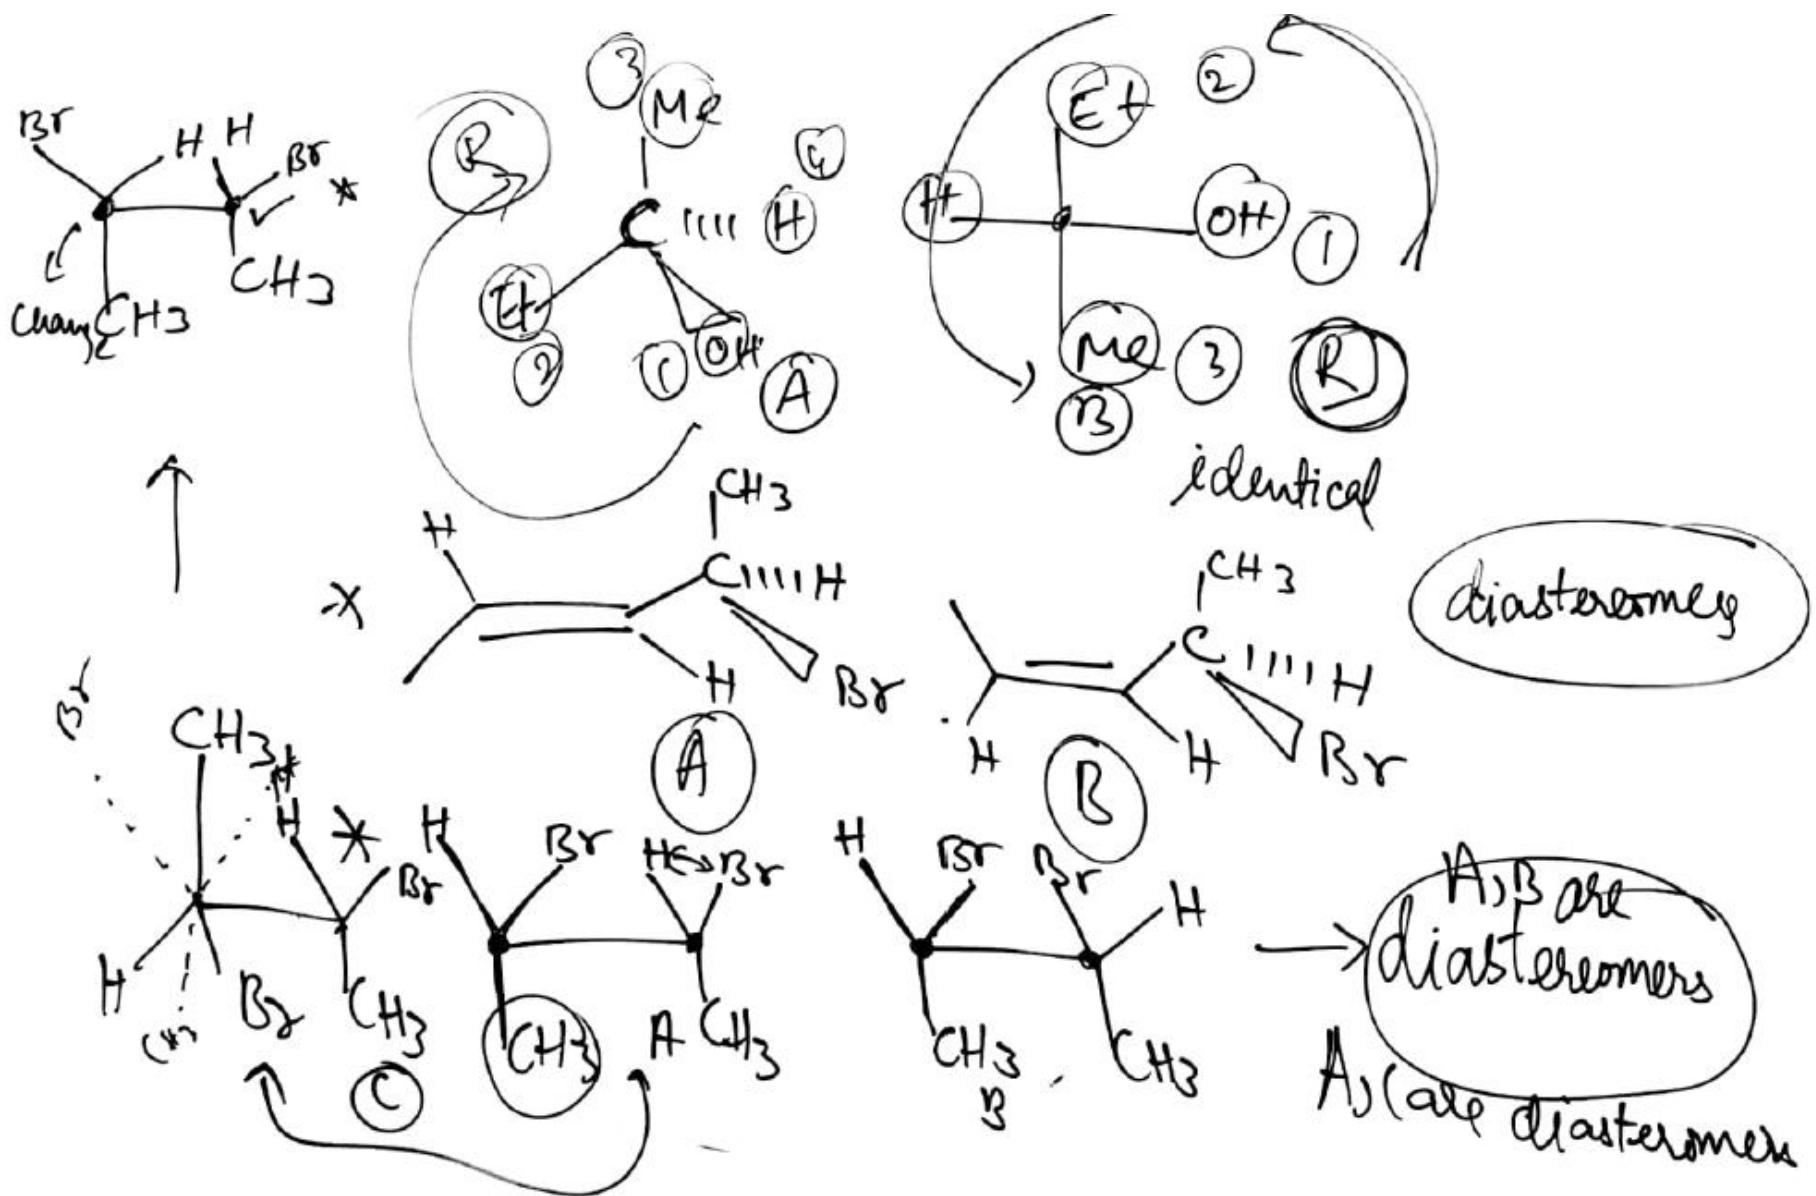 Br
H H
Br
*
CH3
Change CH3
R
3
Me
4
C
H
Et
2
1
OH
A
Et
2
H
OH
1
Me
3
B
R
identical
CH3
H
C
H
X
H
Br
A
CH3
C
H
H
H
Br
B
diastereomers
Br
CH3
H
H
*
Br
H
Br
CH3
CH3
C
H
Br
H↔Br
CH3
A CH3
H
Br
Br
H
CH3
B
CH3
A,B are
diastereomers
A,C are diasteromers